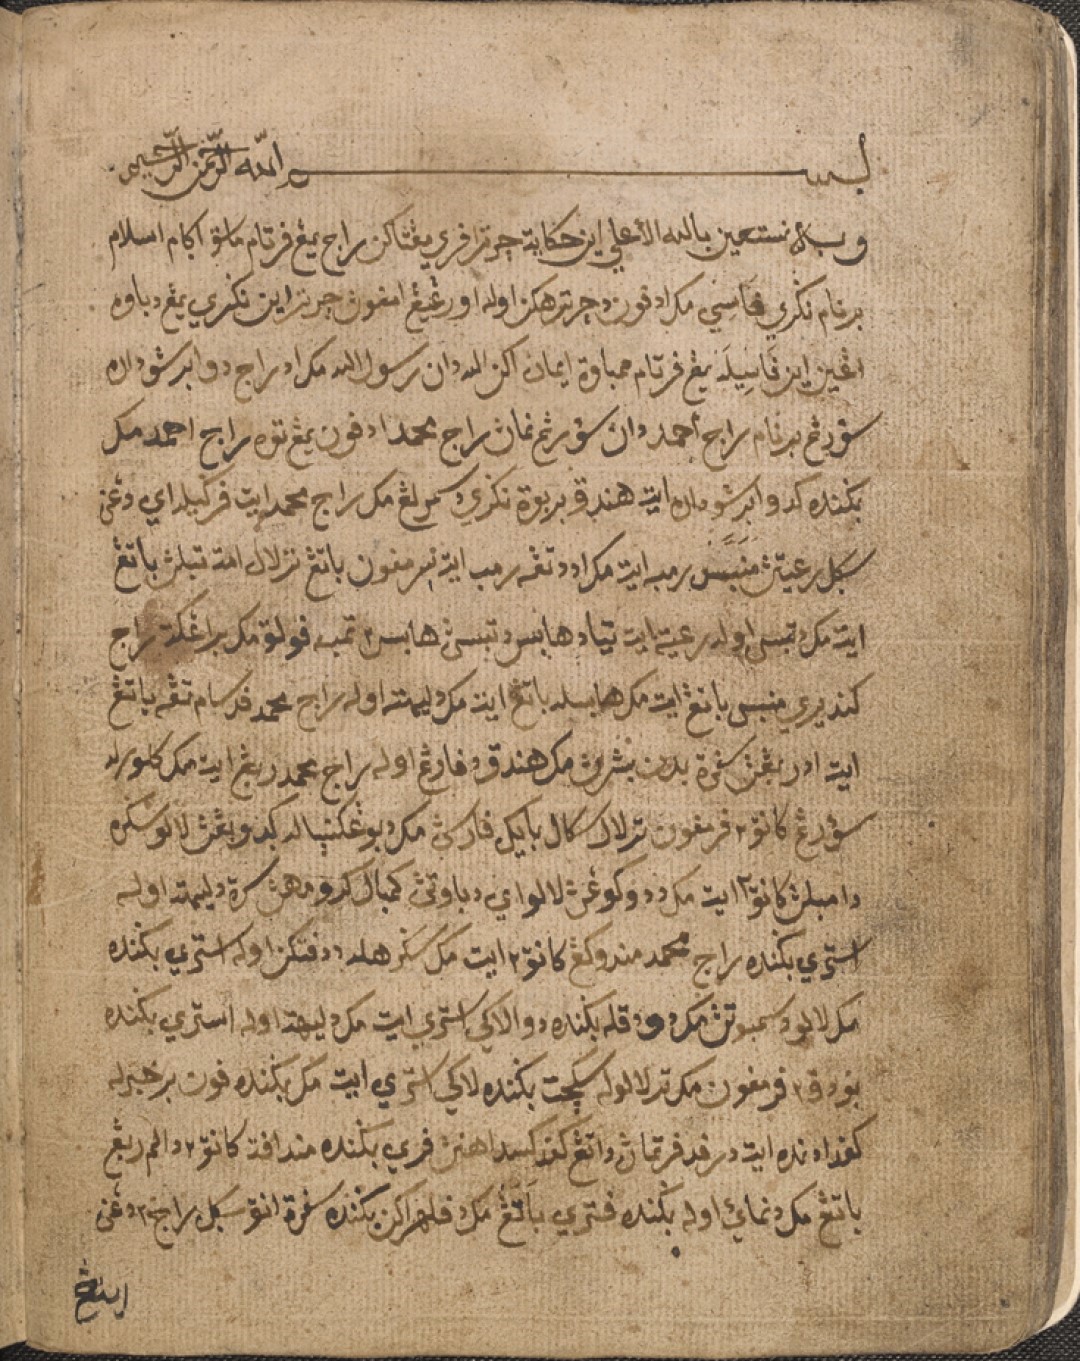 بسم الله الرحمن الرحيم
وبه نستعين بالله الأعلى اين حكاية چرترا فري مڠتاكن راج يڠ فرتام ماسق اڬام اسلام
برنام نڬري فاسي مك ادفون دچرتراكن اوله اورڠ يڠ امفون چرترا اين نڬري يڠ دباوه
اڠين اين فاسيله يڠ فرتام ممباوة ايمان اكن الله دان رسول الله مك اد راج دوا برسودارا
سؤرڠ برنام راج أحمد دان سؤرڠ نمان راج محمد ادفون يڠ توه راج احمد مك
بڬنده كدوا برسودارا ايت هندق بربوة نڬري د سمرلڠ مك راج محمد ايت فركيله اي دڠن
سكل رعيتن منبس رمبه ايت مك اد دتڠه رمب ايت سرمفون باتڠ ترلالو امة تبلن باتڠ
ايت مك دتبس اوله رعية ايت تياد هابس دتبسن هابس٢ تمبه فولق مك براڠكة راج
كنديري منبس باتڠ ايت مك هابسله باتڠ ايت مك دليهة اوله راج محمد فد سام تڠه باتڠ
ايت اد ربڠن سڤرة بدن بسرن مك هندق دفارڠ اوله راج محمد ربڠ ايت مك كلورله
سؤرڠ كانق٢ فرمفون ترلالو سكال بايك فارسن مك دبوڠكسياله كدوبڠن لالو سڬره
دامبلن كانق٢ ايت مك ددوكوڠن لالو اي دباوان كمبالي كرومهن سرة دليهة اوله
استري بڬنده راج محمد مندوكڠ كانق٢ ايت مك سڬرهله ددفتكن اوله استري بڬنده
مك لالو دسمبوتن مك دودقله بڬنده دوا لاكي استري ايت مك دليهة اوله استري بڬنده
بودق٢ فرمفون مك ترلالوله سكچت بڬنده لاكي استري ايت مك بڬنده فون برخبرله
كفد اديندا ايت درفد فرتمان داتڠ كفد كسداهنن فري بڬنده مندافة كانق٢ دالم ربڠ
باتڠ مك دنمائي اوله بڬنده فتري باتڠ مك دفلهراكن بڬنده سفرة انق سكل راج٢ دڠن
اينڠ